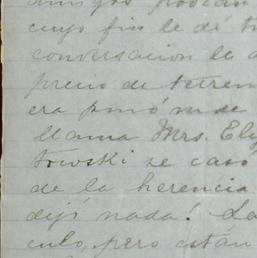 amigos podían
cuyo fin le dé
conversación le
precio de terren
era
llama Mrs. Ely
towski se casó
de la herencia
dejó nada! La
culo, pero están